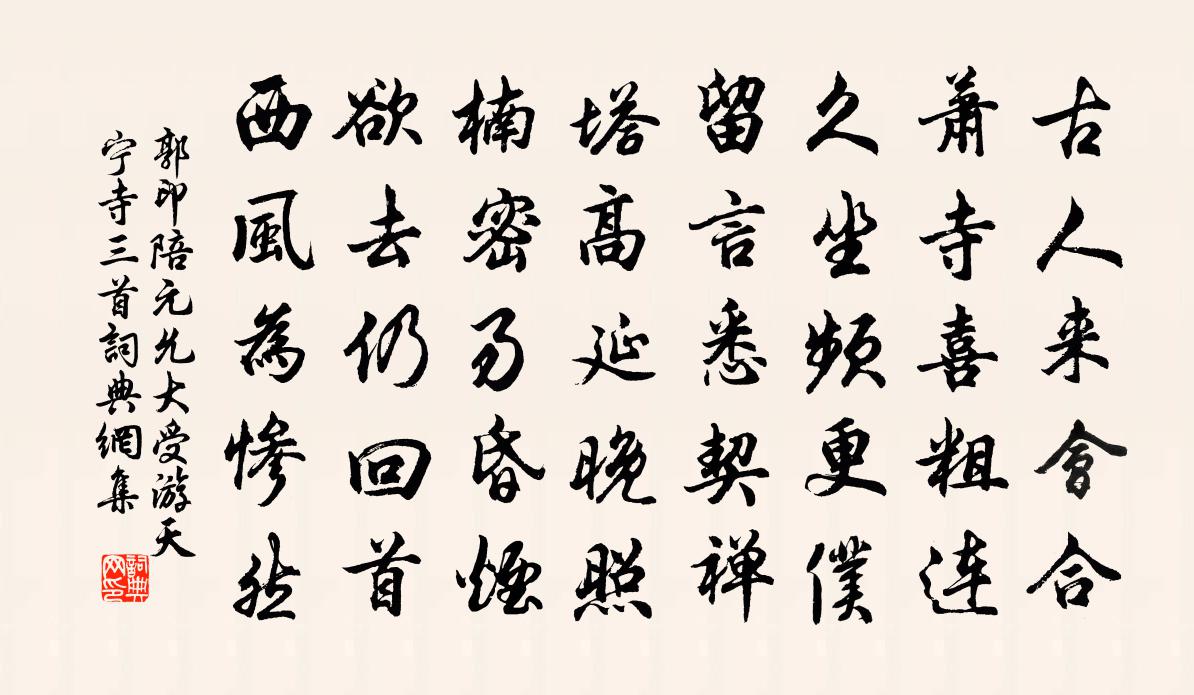 古人来會合
蕭寺喜粗連
久坐頻更僕
留言悉契禅
塔高延晚照
楠密易昏煙
欲去仍回首
西風為慘然
郭印陪元允大受游天
宁寺三首詞典網集
詞典网印